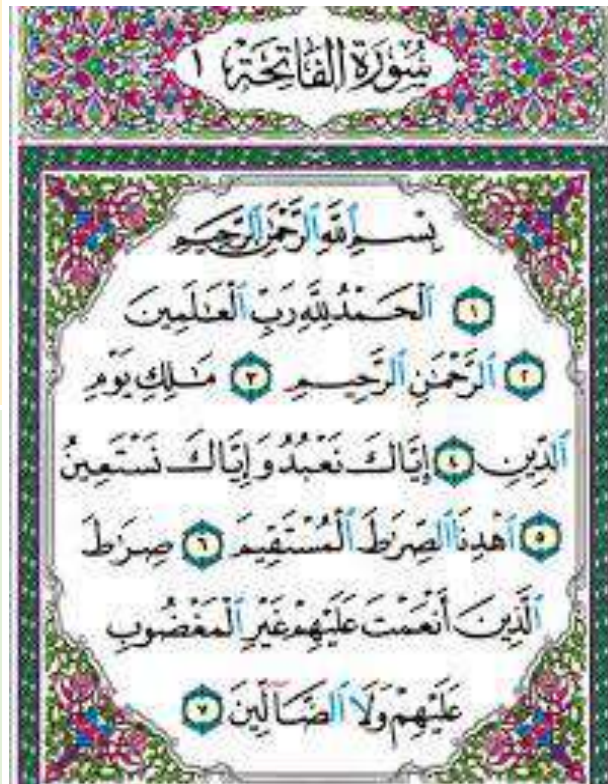 سُورَةُ الفَاتِحَةِ ١
بِسْمِ ٱللَّهِ ٱلرَّحْمَٰنِ ٱلرَّحِيمِ
١ ٱلْحَمْدُ لِلَّهِ رَبِّ ٱلْعَٰلَمِينَ
٢ ٱلرَّحْمَٰنِ ٱلرَّحِيمِ ٣ مَٰلِكِ يَوْمِ
ٱلدِّينِ ٤ إِيَّاكَ نَعْبُدُ وَإِيَّاكَ نَسْتَعِينُ
٥ ٱهْدِنَا ٱلصِّرَٰطَ ٱلْمُسْتَقِيمَ ٦ صِرَٰطَ
ٱلَّذِينَ أَنْعَمْتَ عَلَيْهِمْ غَيْرِ ٱلْمَغْضُوبِ
عَلَيْهِمْ وَلَا ٱلضَّآلِّينَ ٧